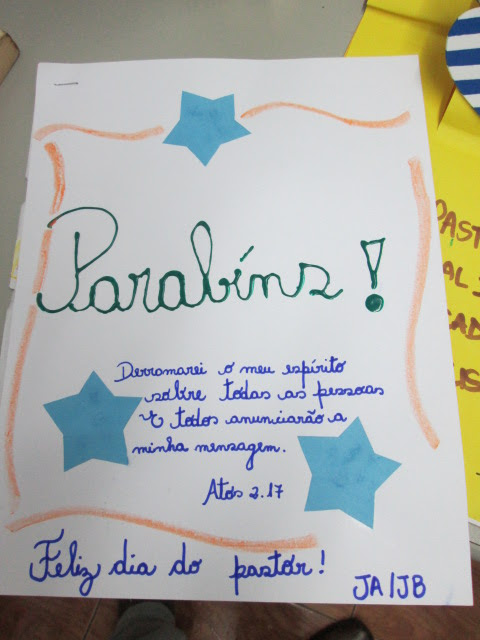 Parabéns!
Derramarei o meu espírito
sôbre todas as pessoas
e todos anunciarão a
minha mensagem.
Atós 2.17
Feliz dia do pastor!
JA/JB
PAST
AL